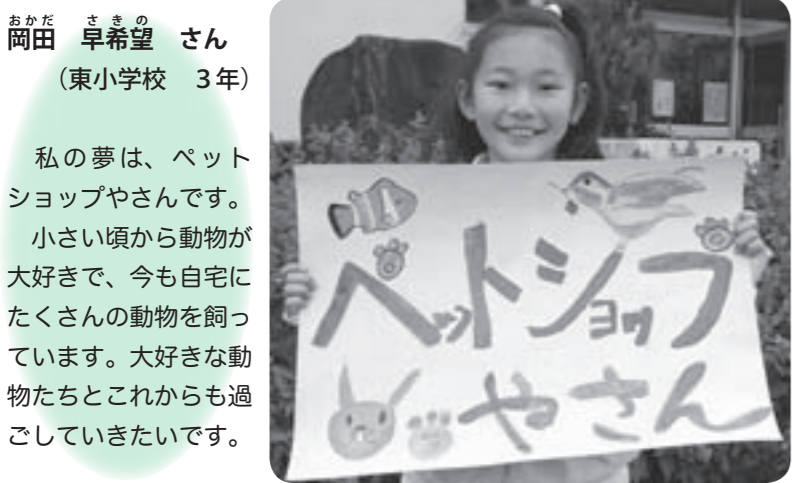 おかだ さきの
岡田 早希望 さん
（東小学校 ３年）
私の夢は、ペット
ショップやさんです。
小さい頃から動物が
大好きで、今も自宅に
たくさんの動物を飼っ
ています。大好きな動
物たちとこれからも過
ごしていきたいです。
ペットショップ
やさん